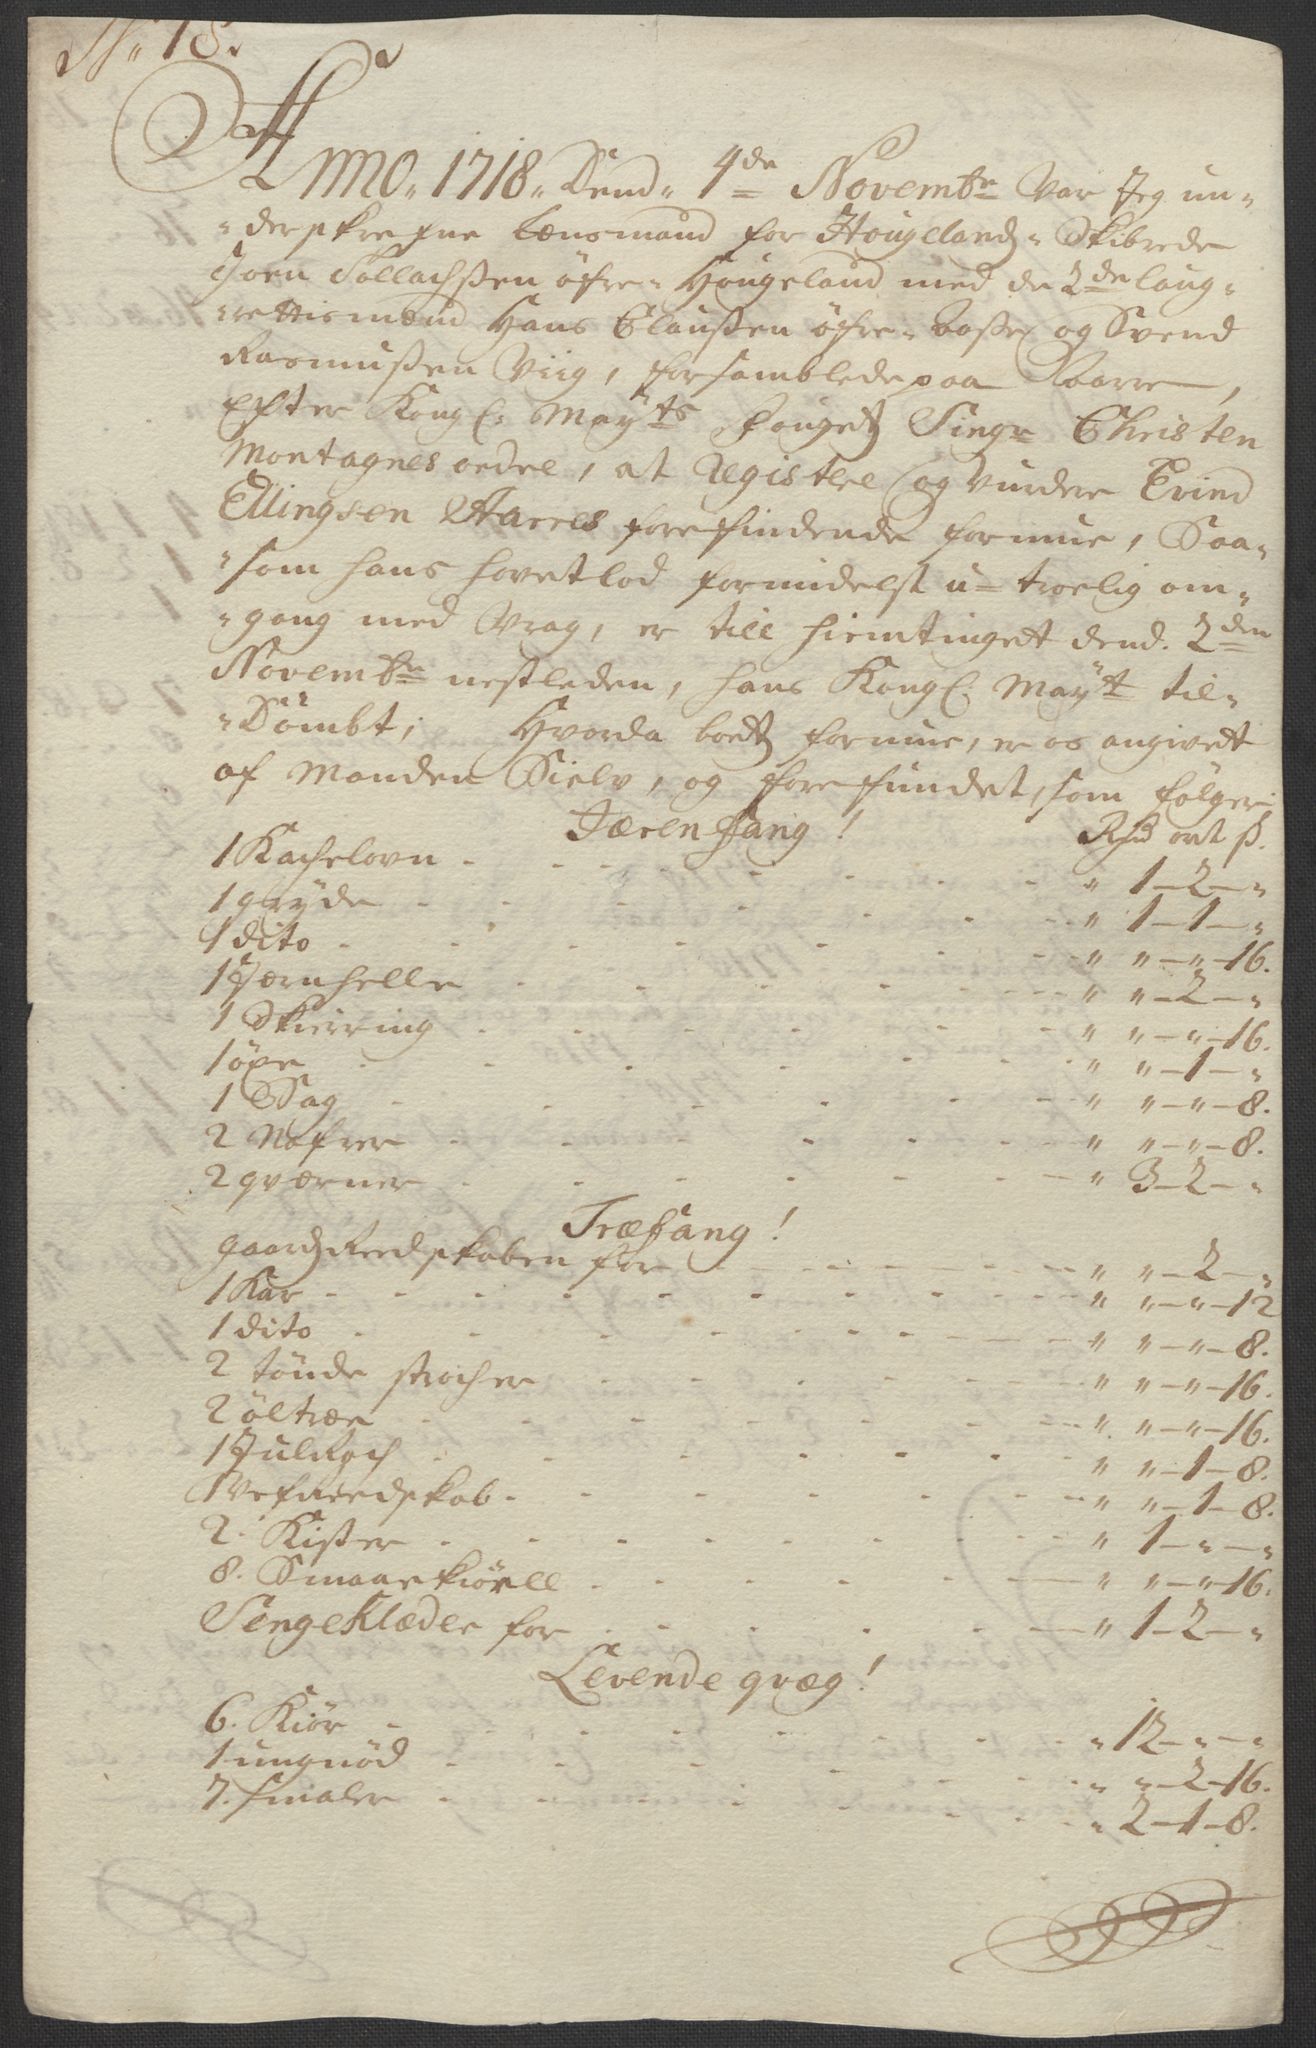 N. 18.
ANNO. 1718. Dend. 4de Novembr. Var Jeg un-
derskrefne Lensmand for Hougelandz Skibrede
Joen Sollachssen öfre Hougeland med de 2de laug-
rettismend Hans Claussen öfre- Bosse og Svend
Rasmussen Viig, forsamblede paa Aarre,
Efter Kongl. Mayts fougetz Singr Christen
Montagnes ordre, at Registree og vurdere Evind
Ellingsen Aarres forefindende formue, Saa-
som hans hovetlod formidelst u-troelig om-
gang med Vrag, er till hiemtinget dend. 2den
Novembr nestleden, hans Kongl. Mayt til-
Dömbt; Hvorda boetz formue, er os angivet
af Manden Sielv, og forefundet, som fölger
Jærenfang! Rdr ort s.
1 Kachelovn - " 1-2-"
1 gryde - " 1-1-"
1 dito - " "-"-16.
1 Jærnhelle - " "-2-"
1 Skierring - " "-"-16.
1 öxe - " "-1-"
1 Sag - " "-"-8.
2 Nafrer - " "-"-8.
2 qværner - " 3-2-"
Træfang!
gaardz Reedskaben for - " "-2-"
1 Kar - " "-"-12
1 dito - " "-"-8.
2 tönde stocher - " "-"-16.
2 öltræe - " "-"-16.
1 Hulkoch - " "-1-8.
1 Vefreedskab - " "-1-8.
2. Kister - " 1-"-"
8. Smaae kiörell - " "-"-16.
SengeKlæder for - " 1-2-"
Levende qvæg!
6. Kiör - " 12-"-"
1 ungnöd - " "-2-16.
7. smaler - " 2-1-8.